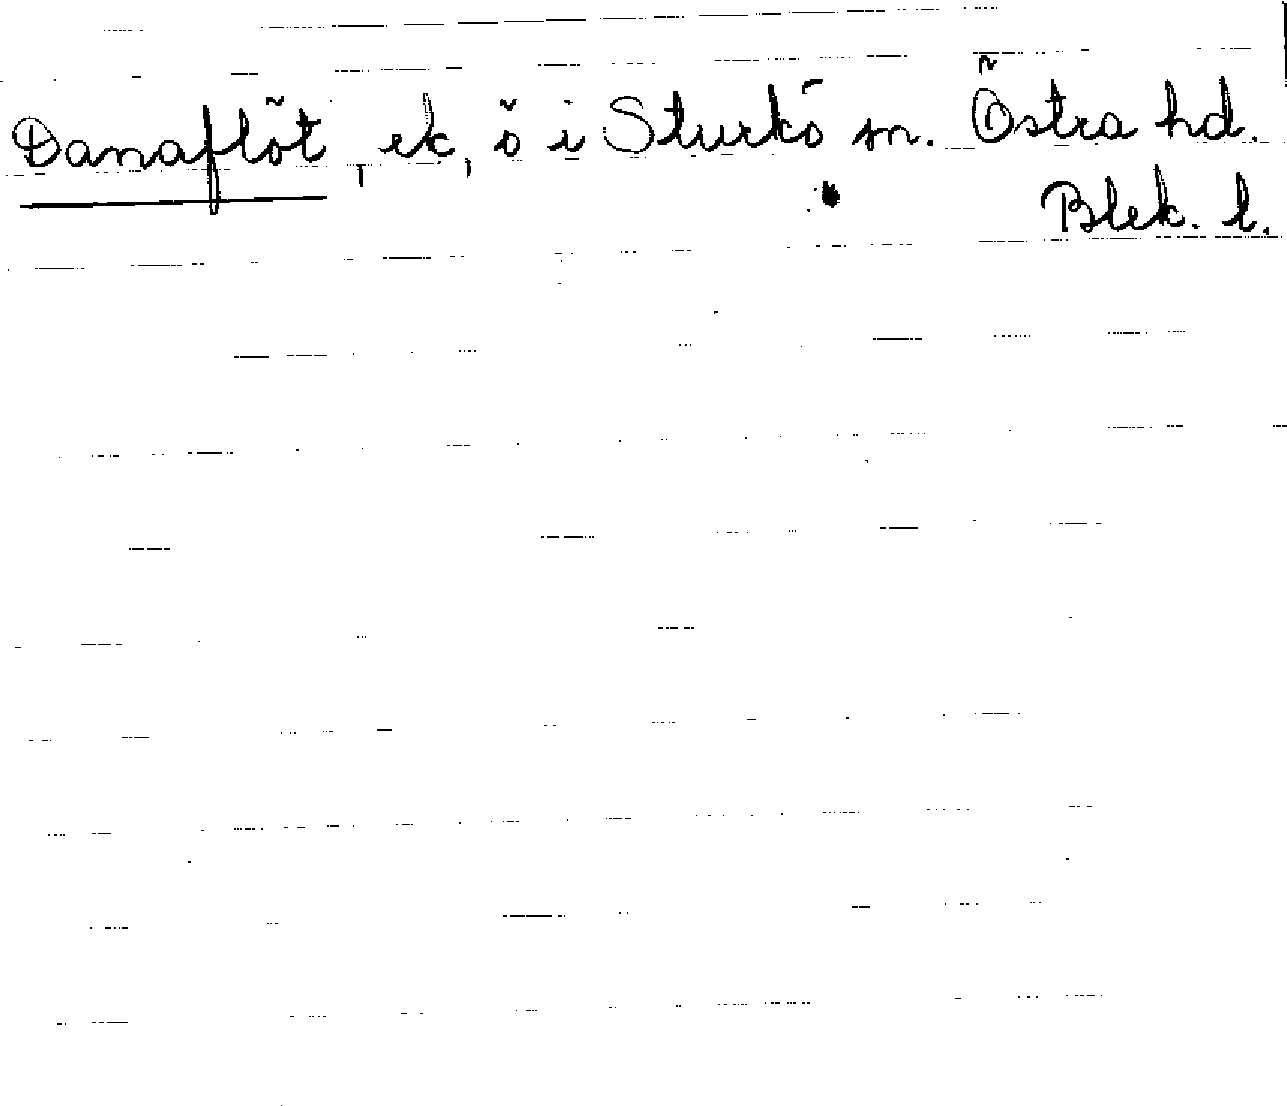 Danaflöt, ek, ö i Sturkö sn. Östra hd.
Blek. l.